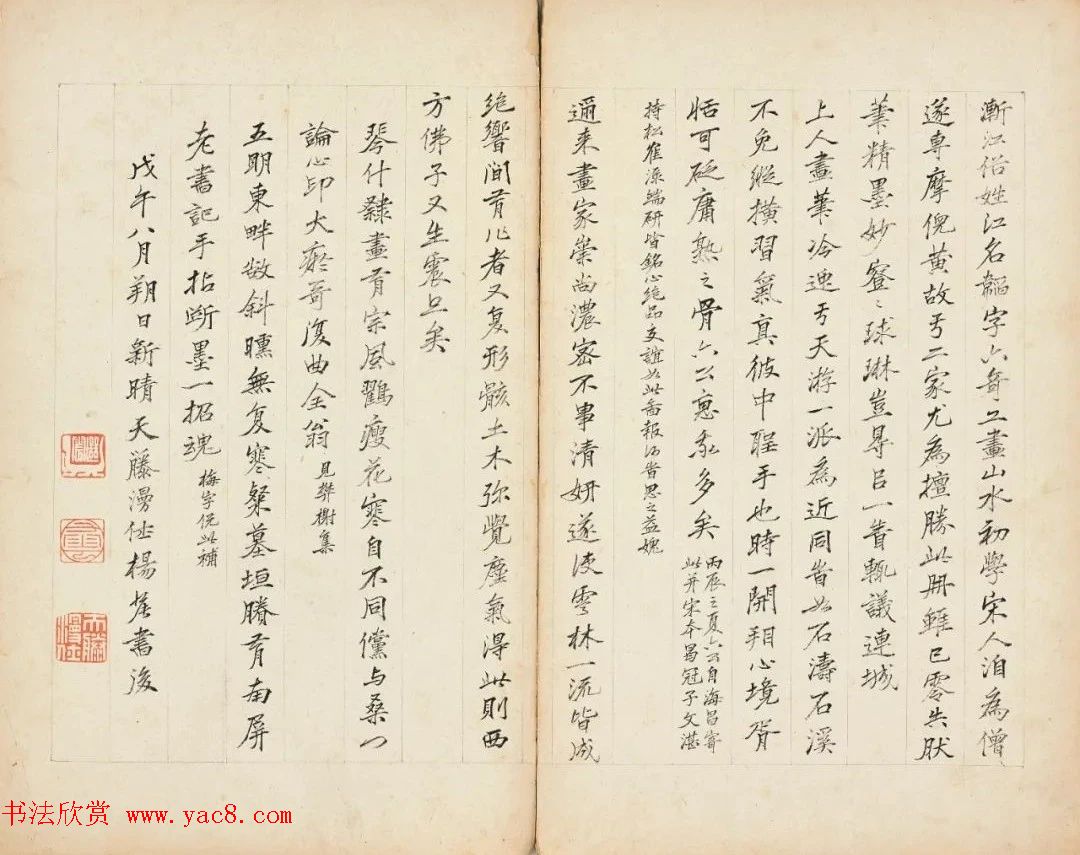 漸江俗姓江名韜字六奇工畫山水初學宋人洎為僧
遂專摩倪黃故于二家尤為擅勝此冊雖已零失肰
筆精墨妙寥〻球琳豈尋呂一眚輒議連城
上人畫筆冷逸于天游一派為近同岩如石濤石溪
不免縱橫習氣真彼中聖手也時一開翔心境胥
恬可砭庸熟之骨六公惠我多矣
丙辰之夏六公自海昌寄
此并宋本曷冠子文湛
持松厓澡端研皆銘心絕品交誼如此啇報何昔思之益媿
邇來畫家崇尚濃密不事清妍遂使雩林一流皆成
絕響間有作者又复形骸土木弥覺塵氣得此則西
方佛子又生震旦矣
琴什隸畫有宗風鸛瘦花寒自不同儻与桑門
論心印大癡哥復曲全翁 見樊榭集
五明東畔數斜曛無复寒粲墓垣賸有南屏
老書記手拈斷墨一招魂 梅字倪此補
戊午八月朔日新晴天藤漫仕楊 書後
書法欣赏 www.yac8.com